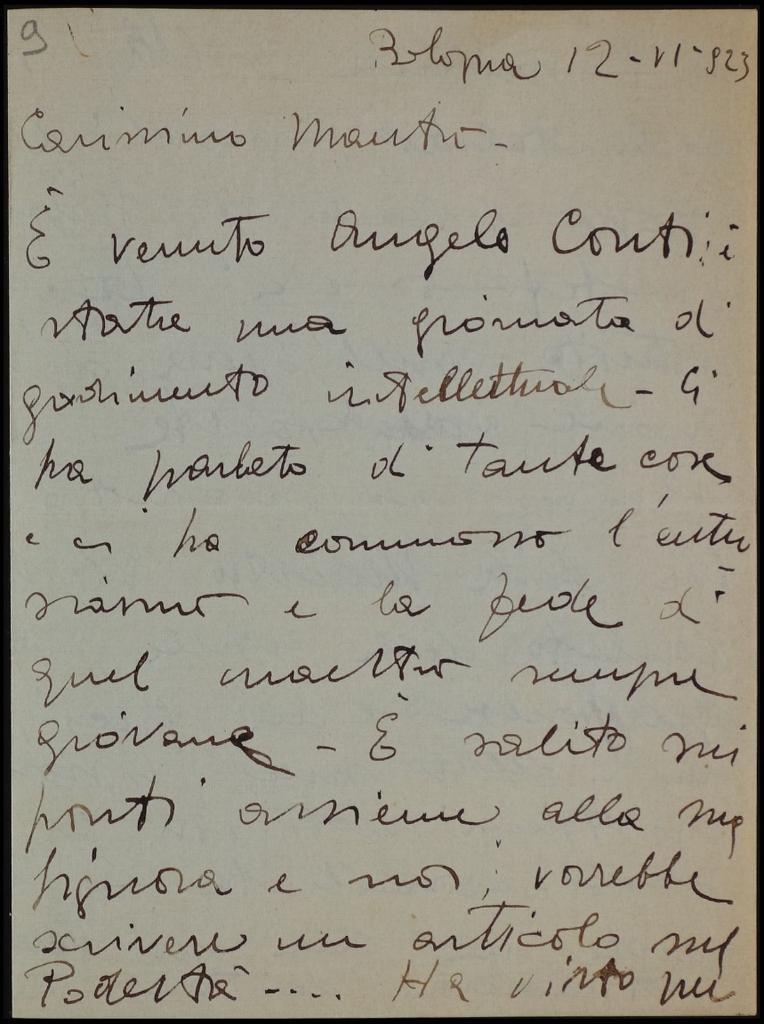 9
Bologna 12-VI-923
Carissimo Maestro -
È venuto Angelo Conti; è
stata una giornata di
godimento intellettuale - Ci
ha parlato di tante cose
e ci ha commosso l'entu
siasmo e la fede di
quel maestro sempre
giovane - È salito sui
ponti assieme alla sua
signora e noi; vorrebbe
scrivere un articolo sul
Podestà - .... Ha visto nei